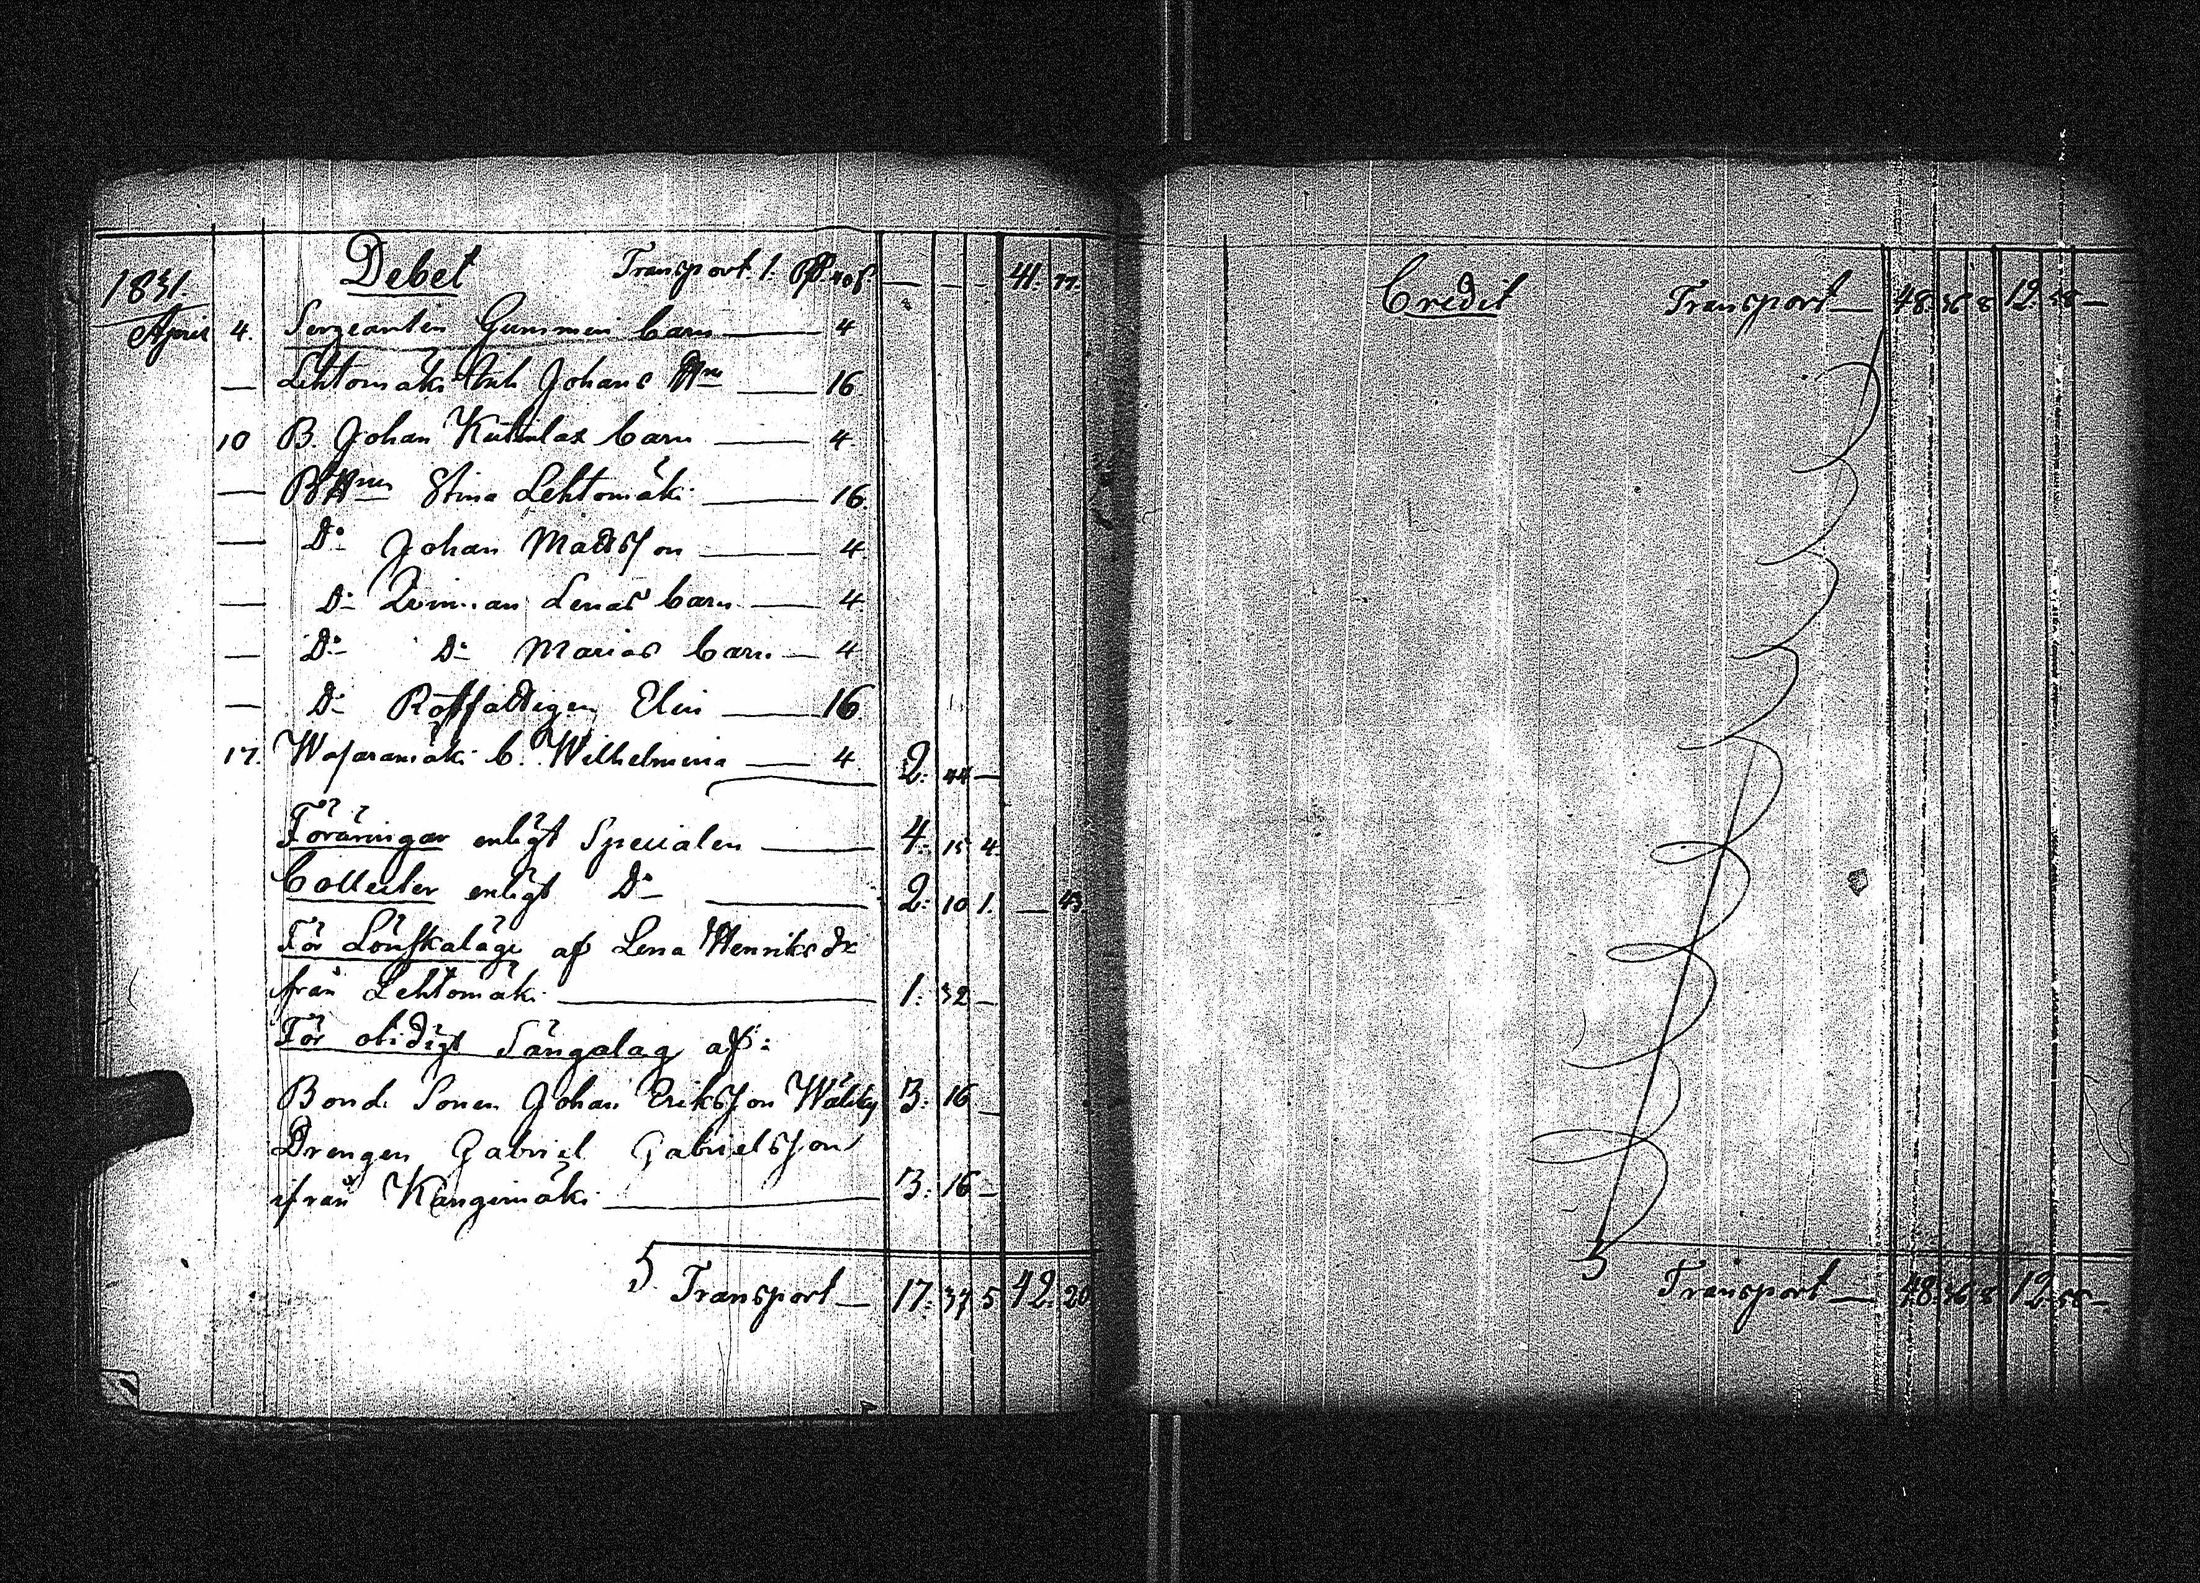 Debet Transport. 1. 41. 77.
1831.
April 4. Sergeanten Gummeri barn — 4
— Lehtomäki Enk. Johans — 16.
10 B. Johan barn — 4.
— Stina Lehtomäki — 16.
— Do Johan Mattsson — 4.
— Do Qvinnan Lenas barn — 4.
— Do Do Marias barn — 4.
— Do Elin — 16.
17. Wasaramäki b. Wilhelmina — 4. 2: 44 —
Föräringar enligt Specialen — 4: 15 4.
Collecter enligt Do — 2: 10 1. — 43.
För Lönskaläge af Lena Henriksdr
från Lehtomäki — 1: 32 —
För otidigt Sängalag af:
Bonde Sonen Johan Eriksson 3: 16 —
Drengen Gabriel Gabrielsson
ifrån Kangermäki — 3: 16 —
5
Transport — 17: 37 5 42: 20
Credit Transport — 48. 36 8 12. 58 —
5
Transport — 48. 36 8 12. 58 —